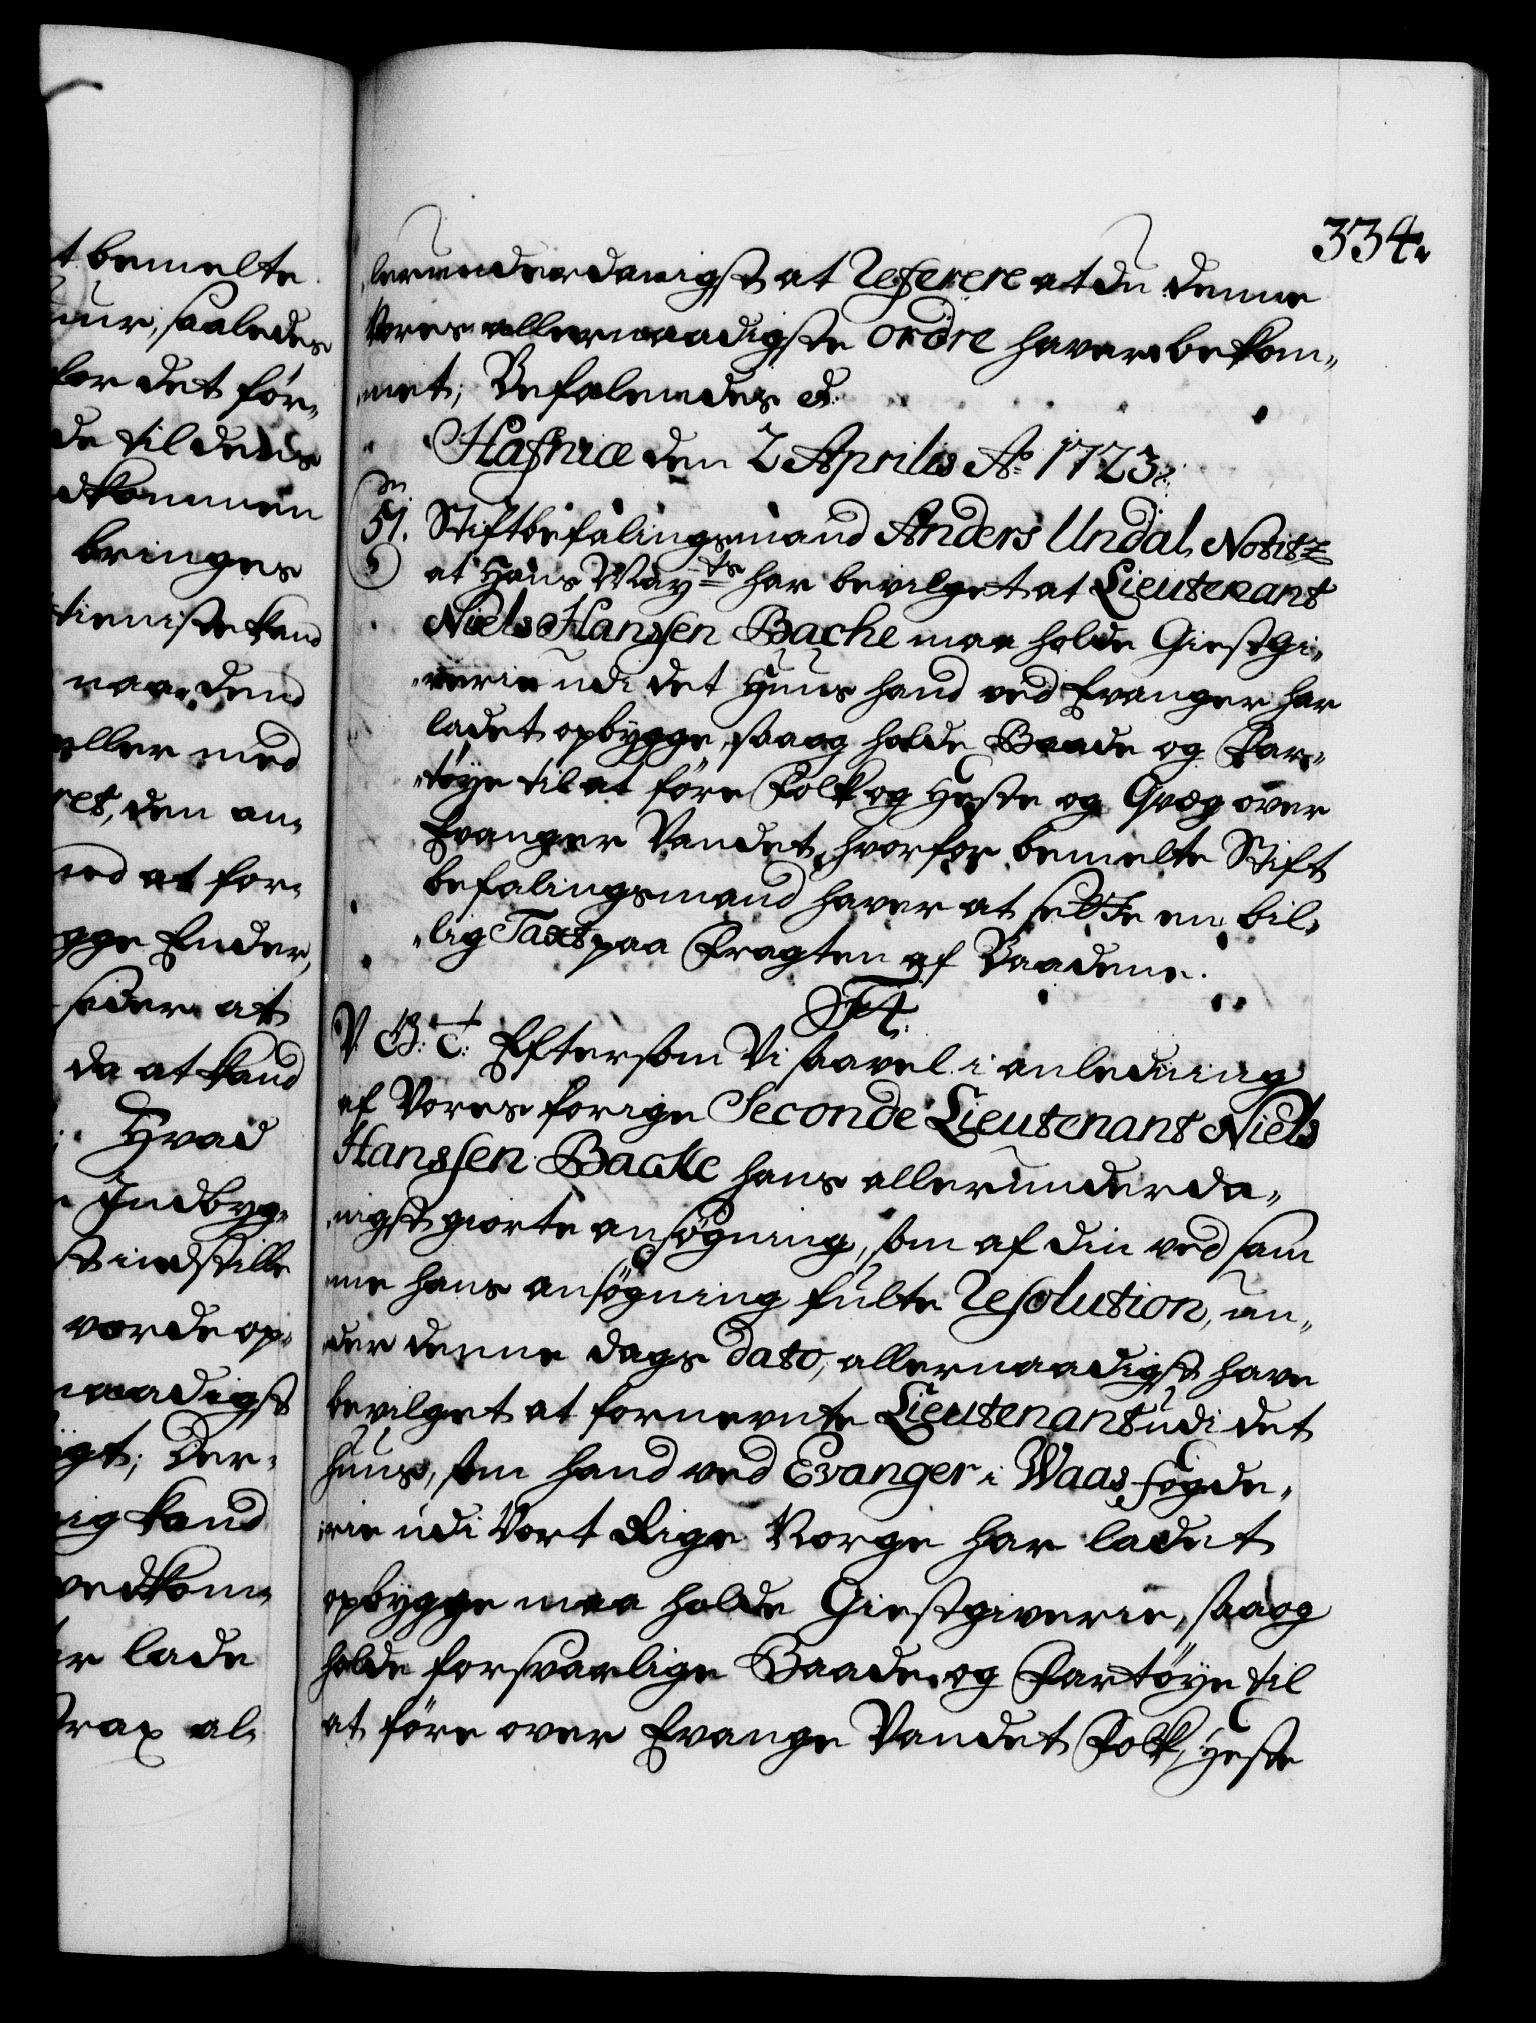 t bemelte
uur, saaledes
for det før,
de til deres
dkommen
bringes
tieniste kand
naar dend
eller med
ret, den an,
ned at for,
gge Ender,
seder at
da at kand
Hvad
Indbyg,
st indstille
vorde op,
naadigst
igt; Der,
ig kand
vedkom,
r lade
trax al,
334.
lerunderdanigst at Referere at du denne
Vores allernaadigste ordre haver bekom,
met; Befalendes etc.
Hafniæ den 2 Aprilis Ao 1723.
51. Stiftbefalingsmand Anders Undal, Notitz
at Hans Mayts har bevilget at Lieutenant
Niels Hansen Bache maa holde Giestgi,
verie udi det Huus hand ved Evanger har
ladet opbygge, saa og holde Baade og Far,
tøye til at føre Folk og Heste og Qvæg over
Evanger Vandet, hvorfor bemelte Stift
befalingsmand haver at sette en bil,
lig Taxt paa Fragten af Baadene.
F4.
V. G. T. Eftersom Vi saavel i anledning
af Vores forige Seconde Lieutenant Niels
Hanssen Backe hans allerunderda,
nigst giorte ansøgning, som af din ved sam
me hans ansøgning fulte Resolution, un,
der denne dags dato, allernaadigst have
bevilget at fornevnte Lieutenant udi det
huus, som hand ved Evanger i Waas fogde,
rie udi Vort Rige Norge har ladet
opbygge maa holde Giestgiverie, saa og
holde forsvarlige Baade og Fartøye til
at føre over Evange Vandet Folk, Heste